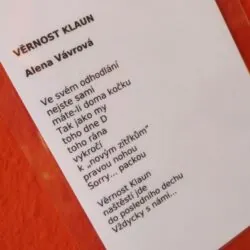 VĚRNOST KLAUN
Alena Vávrová
Ve svém odhodlání
nejste sami
máte-li doma kočku
Tak jako my
toho dne D
toho rána
vykročí
k „novým zítřkům"
pravou nohou
Sorry... packou
Věrnost Klaun
naštěstí jde
do posledního dechu
Vždycky s námi...